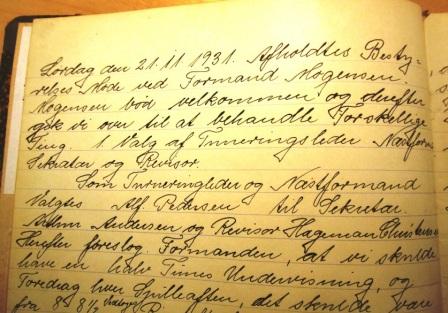 Lørdag den 21.11.1931. Afholdtes Besty-
relses Møde ved Formand Mogensen.
Mogensen bød velkommen og derefter
gik vi over til at behandle Forskellige
Ting. 1 Valg af Turneringsleder Næstform
Sekretær og Revisor.
Som Turneringleder og Næstformand
Valgtes Alf Pedersen til Sekretær.
Andersen og Revisor Hageman
Herefter foreslog Formanden, at vi skulde
have en halv Times Undervisning, og
Foredrag hver Spilleaften, det skulde være
fra 8-8½